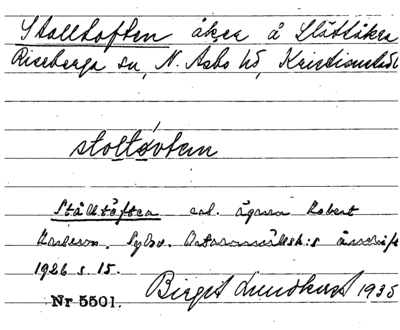 Stalltoften åker å Slättåkra
Riseberga sn, N. Åsbo hd, Kristianstads
staltåvten
Ståltöften enl. ägaren Robert
Karlsson. Sydsv. Ortnamnssällsk:s årsskrift
1926 s. 15.
Nr 5501. Birgit Lundkvist 1935